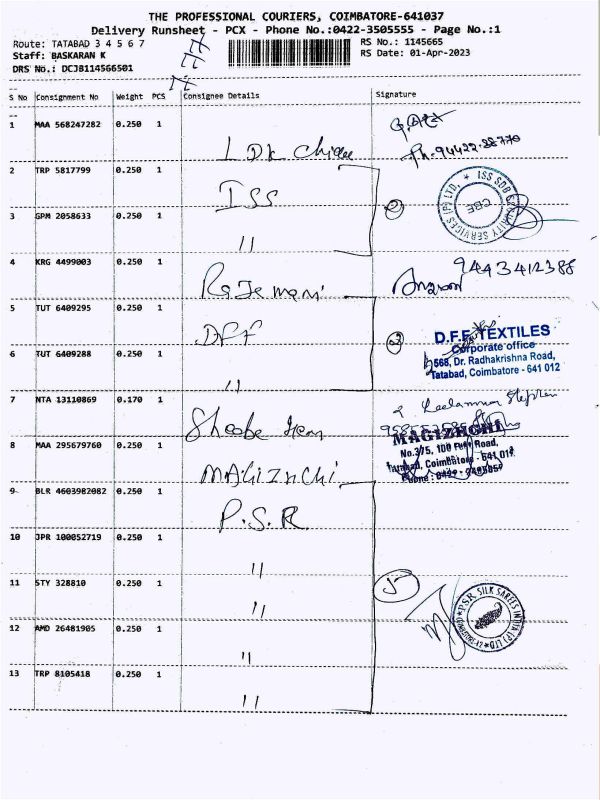 THE PROFESSIONAL COURIERS, COIMBATORE-641037
Delivery Runsheet - PCX - Phone No.:0422-3505555 - Page No.:1
Route: TATABAD 3 4 5 6 7
RS No.: 1145665
Staff: BASKARAN K
RS Date: 01-Apr-2023
DRS No.: DCJB114566501
S No Consignment No Weight PCS Consignee Details Signature
1 MAA 568247282 0.250 1
Ph. 94422-28770
2 TRP 5817799 0.250 1 ISS
3 GPM 2058633 0.250 1 "
2
4 KRG 4499003 0.250 1 9443412388
Rajemani
5 TUT 6409295 0.250 1 DFF
2
D.F.F. TEXTILES
Corporate office
568, Dr. Radhakrishna Road,
Tatabad, Coimbatore - 641 012
6 TUT 6409288 0.250 1 "
7 NTA 13110869 0.170 1
MAGIZHCHI
No.375, 100 Feet Road,
Tatabad, Coimbatore - 641 012
8 MAA 295679760 0.250 1 MAGIZHCHI
9 BLR 4603982082 0.250 1 P.S.R
10 JPR 100052719 0.250 1 "
11 STY 328810 0.250 1 "
5
PSR SILK SAREES INDIA (P) LTD
12 AMD 26481905 0.250 1 "
13 TRP 8105418 0.250 1 "